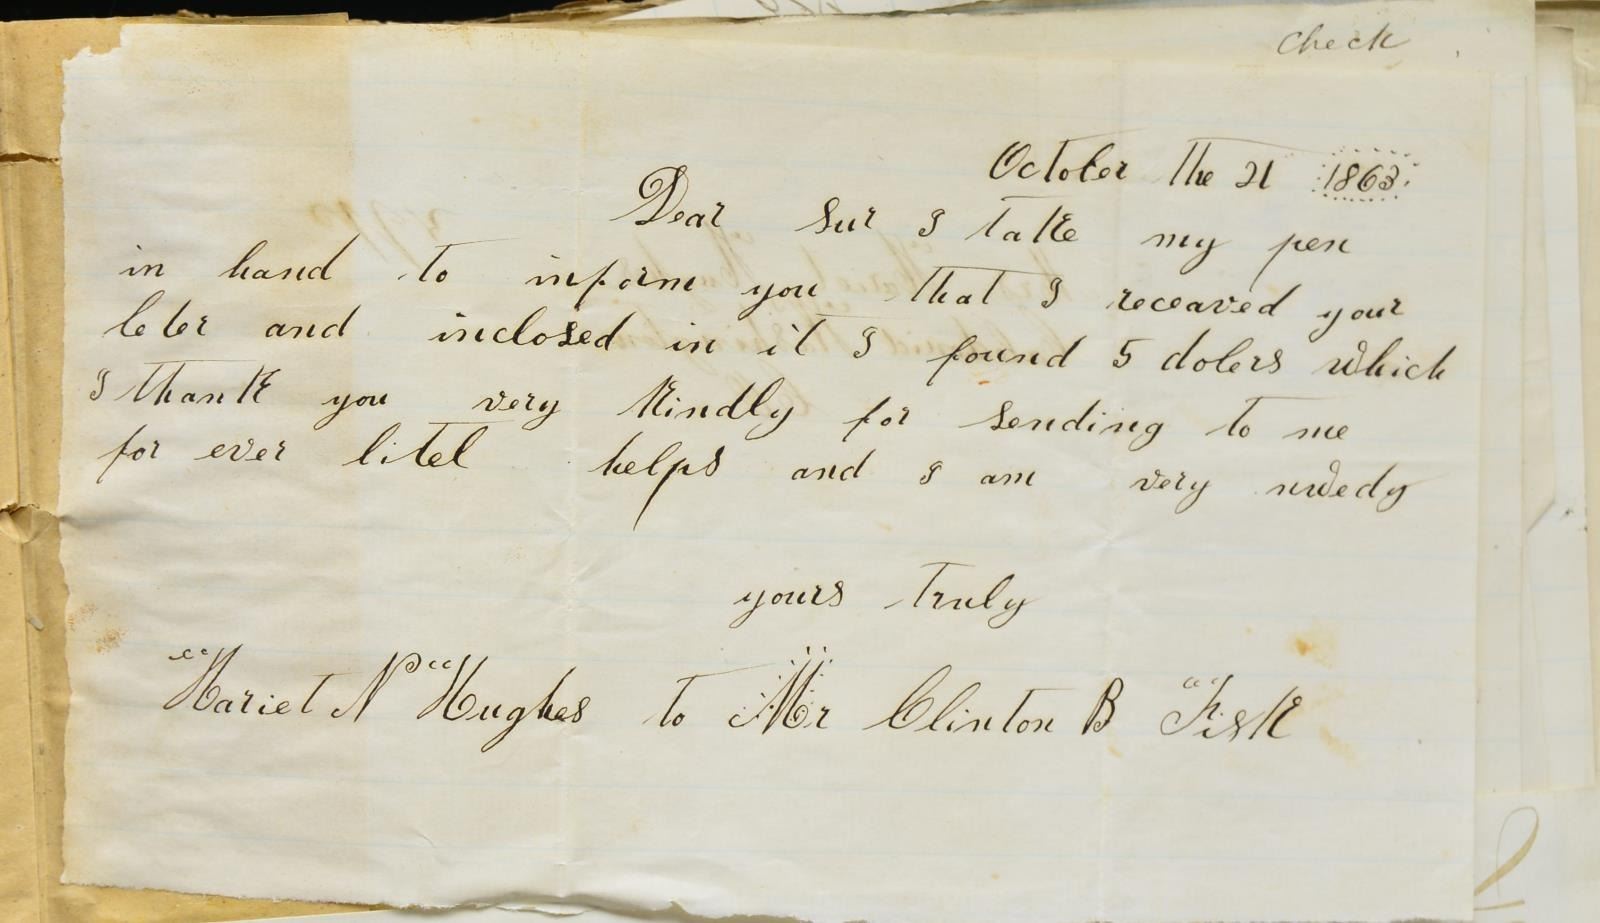 Check
October the 21 1863.
Dear Sur I take my pen
in hand to inform you that I receaved your
leter and inclosed in it I found 5 dolers which
I thank you very kindly for sending to me
for ever litel helps and I am very nwedy
yours truly
Hariet N Hughes to Mr Clinton B Fisk